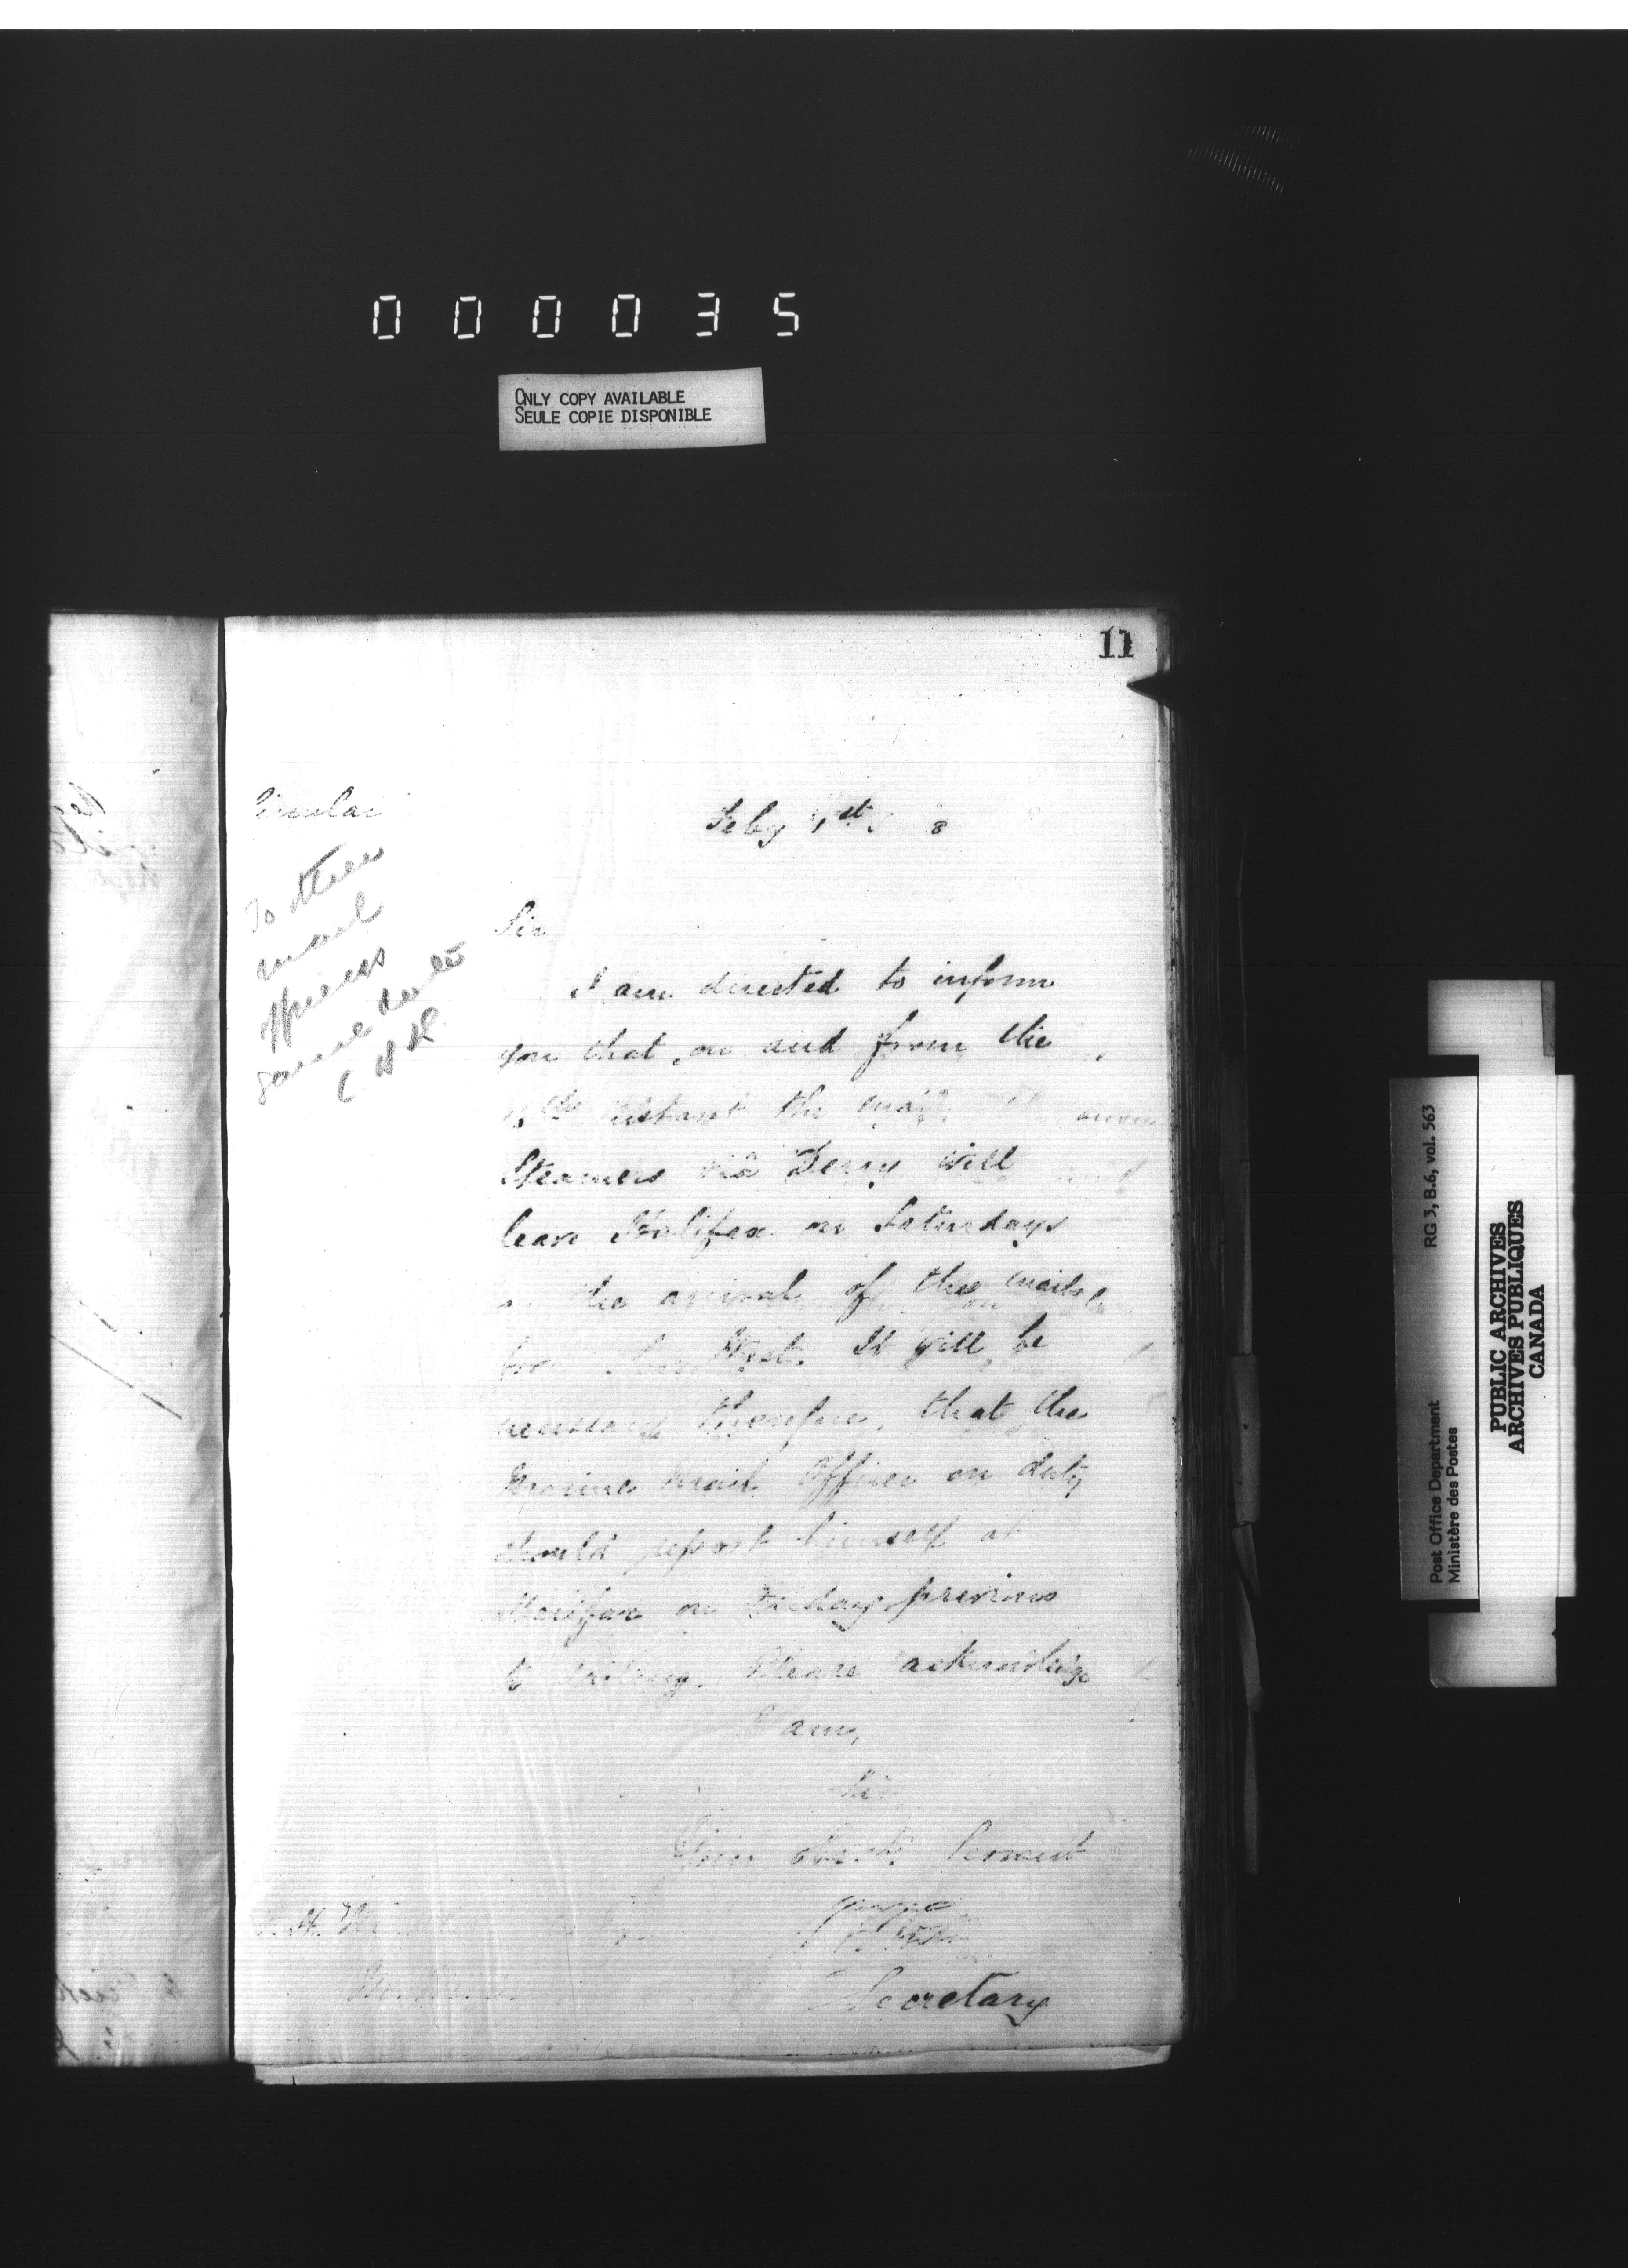 000035
ONLY COPY AVAILABLE
SEULE COPIE DISPONIBLE
11
Circular
Feby 1st 8
To other
mail
officers
same date
Sir
I am directed to inform
you that, on and from the
instant the mail
Steamers viâ Derry will
leave Halifax on Saturdays
on the arrival of the mails
from the West. It will be
necessary therefore, that the
Marine Mail Officer on duty
should report himself at
Halifax on Friday previous
to sailing. Please acknowledge
I am,
Sir
Your obedt. Servant
Secretary
Post Office Department
Ministère des Postes
RG 3, B.6, vol. 563
PUBLIC ARCHIVES
ARCHIVES PUBLIQUES
CANADA